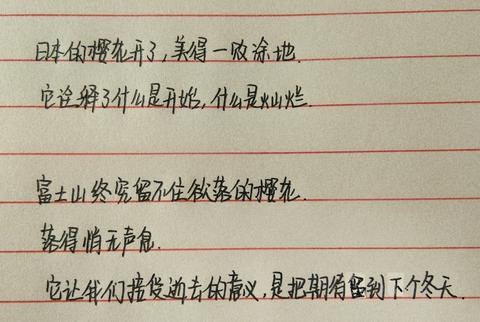 日本的樱花开了，美得一败涂地.
它诠释了什么是开始，什么是灿烂.
富士山终究留不住欲落的樱花.
落得悄无声息.
它让我们接受逝去的意义，是把期待留到下个冬天.